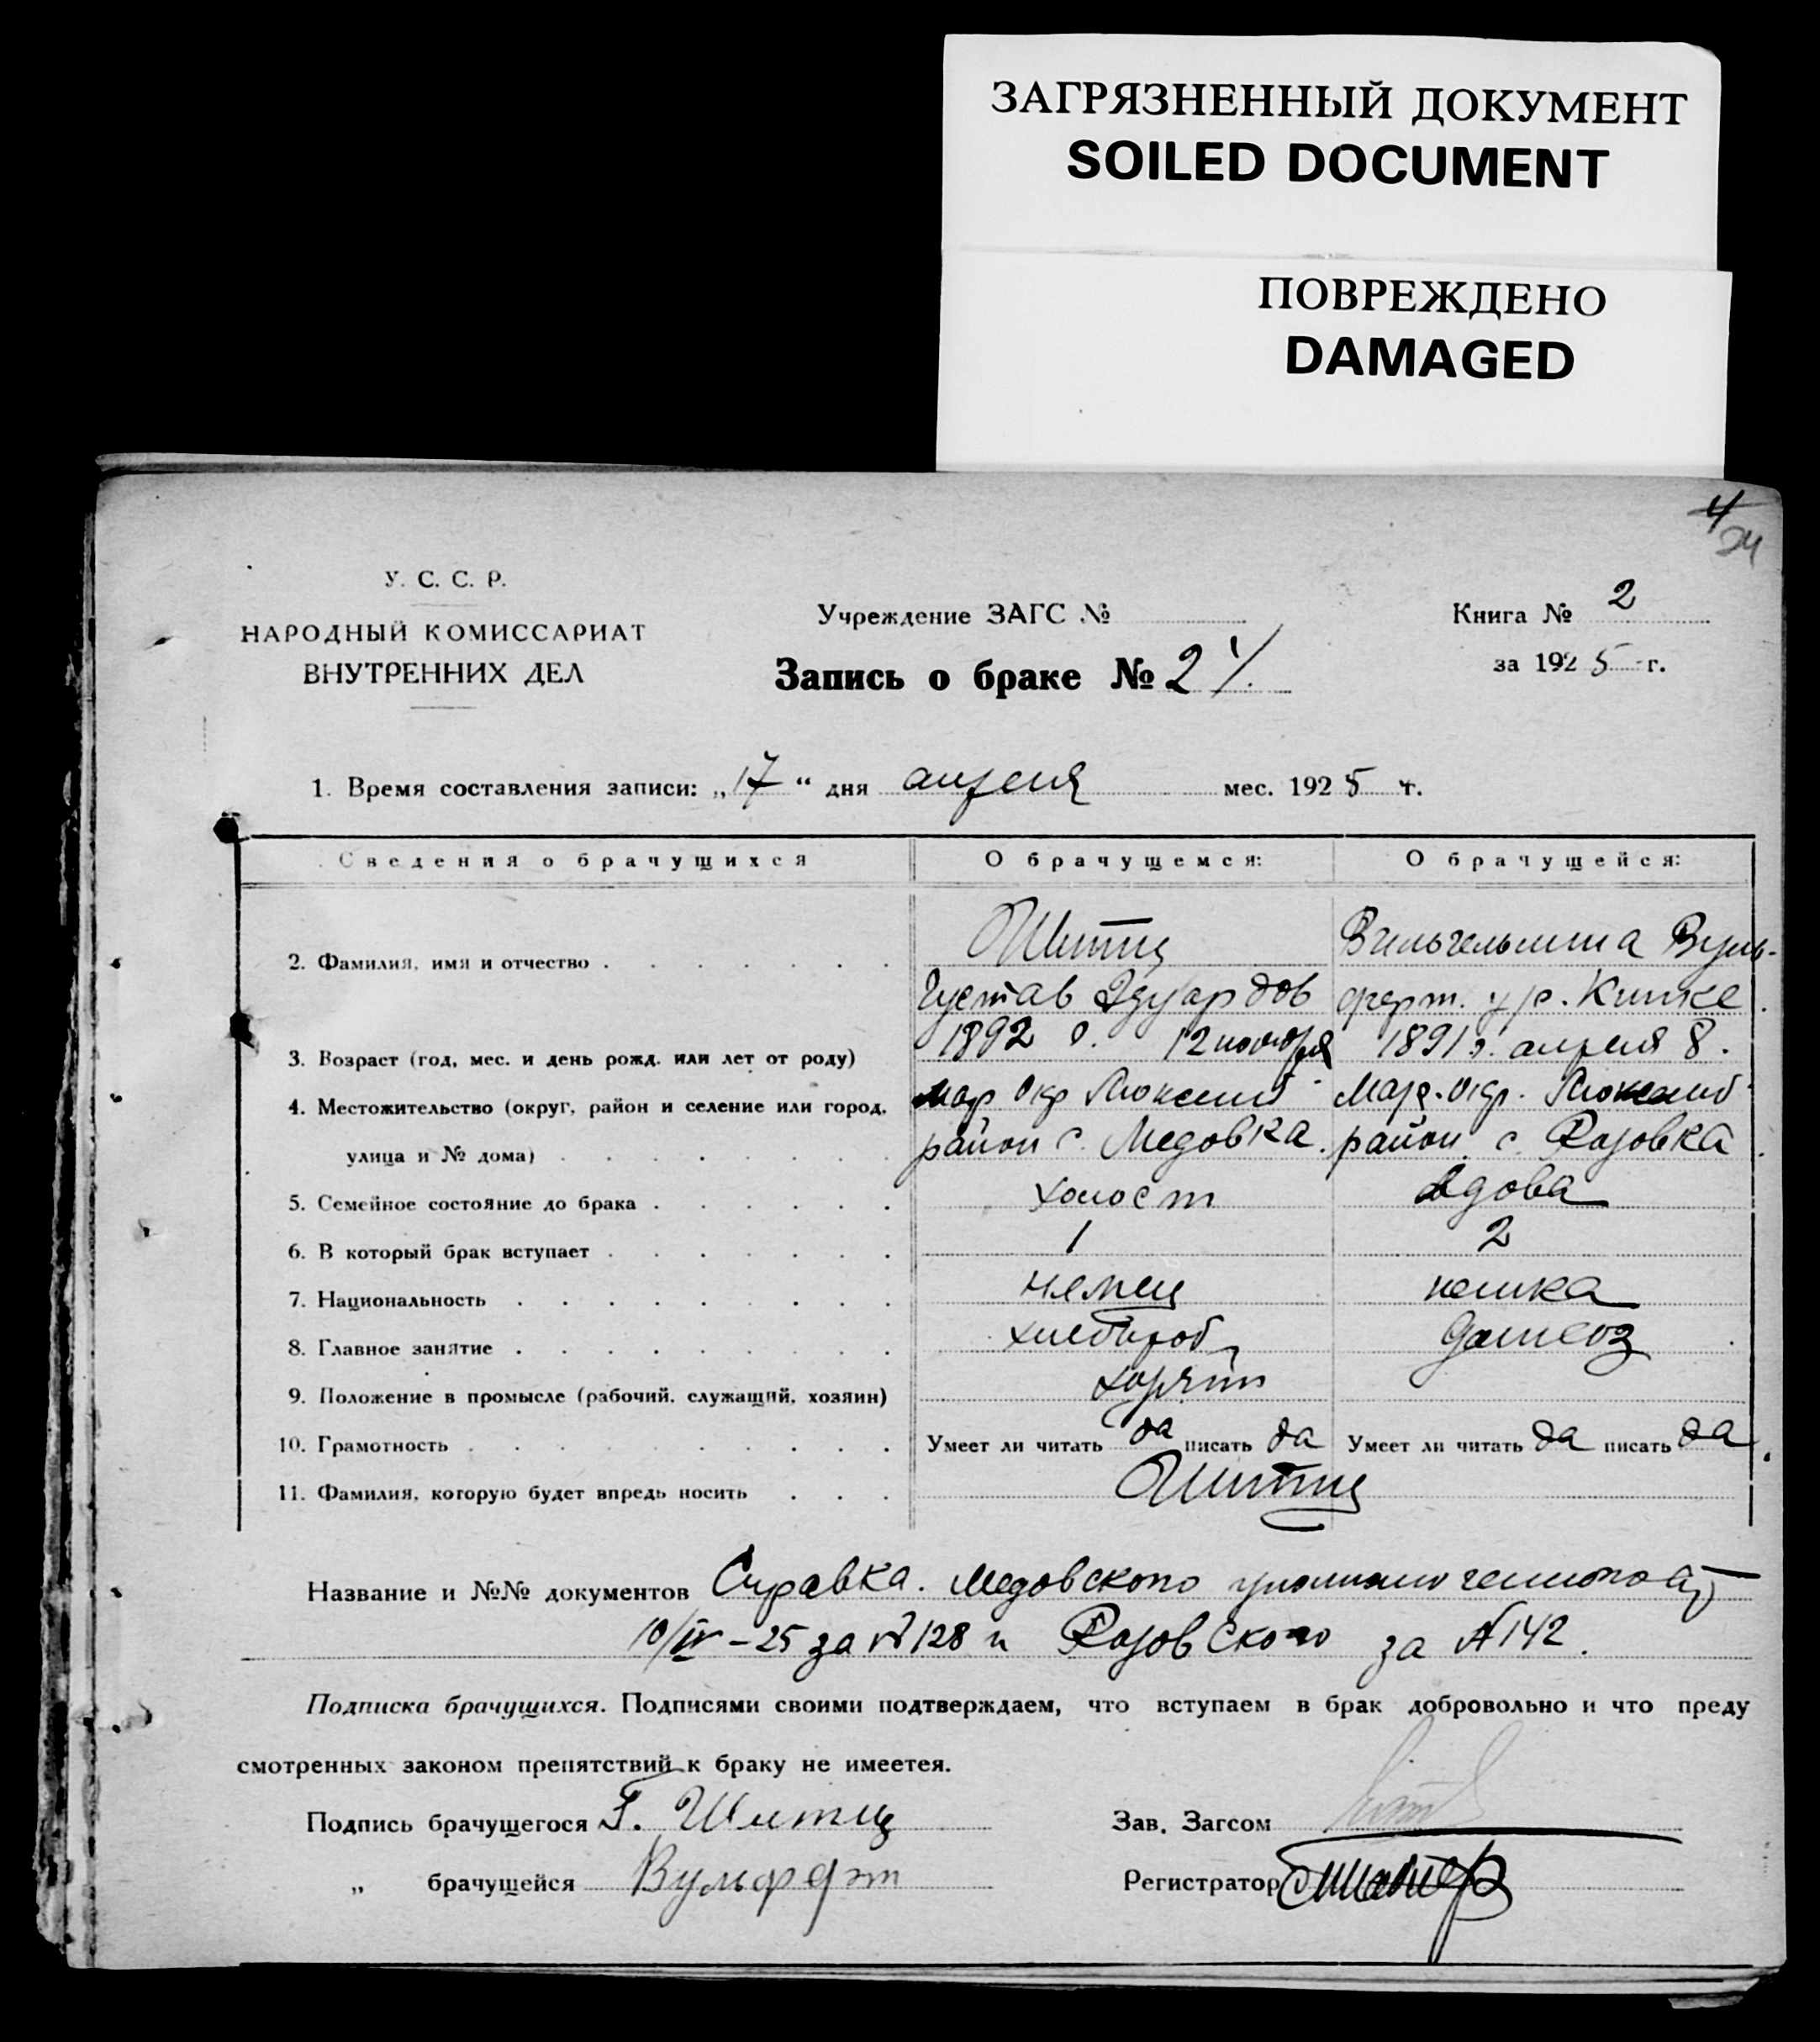 ЗАГРЯЗНЕННЫЙ ДОКУМЕНТ
SOILED DOCUMENT
ПОВРЕЖДЕНО
DAMAGED
4
24
У. С. С. Р.
НАРОДНЫЙ КОМИССАРИАТ
ВНУТРЕННИХ ДЕЛ
Учреждение ЗАГС №
Запись о браке № 21
Книга № 2
за 1925 г.
1. Время составления записи: „17“ дня апреля мес. 1925 г.
Сведения о брачущихся О брачущемся: О брачущейся:
2. Фамилия, имя и отчество Шитц Вильгельмина Вуль-
Густав Эдуардов ферт. ур. Кипке
3. Возраст (год, мес. и день рожд. или лет от роду) 1892 г. 12 ноября 1891 г. апреля 8.
4. Местожительство (округ, район и селение или город, мар окр Люксенб Мар. окр. Люксенб
улица и № дома) район с. Медовка. район с. Розовка
5. Семейное состояние до брака холост вдова
6. В который брак вступает 1 2
7. Национальность немец немка
8. Главное занятие хлебороб домхоз
9. Положение в промысле (рабочий, служащий, хозяин) хозяин
10. Грамотность Умеет ли читать да писать да Умеет ли читать да писать да
11. Фамилия, которую будет впредь носить Шитц
Название и №№ документов Справка. Медовского уполномоченного
10/IV-25 за № 128 и Розовского за № 142.
Подписка брачущихся. Подписями своими подтверждаем, что вступаем в брак добровольно и что преду
смотренных законом препятствий к браку не имеетея.
Подпись брачущегося Г. Шитц
Зав. Загсом
„ брачущейся Вульферт
Регистратор